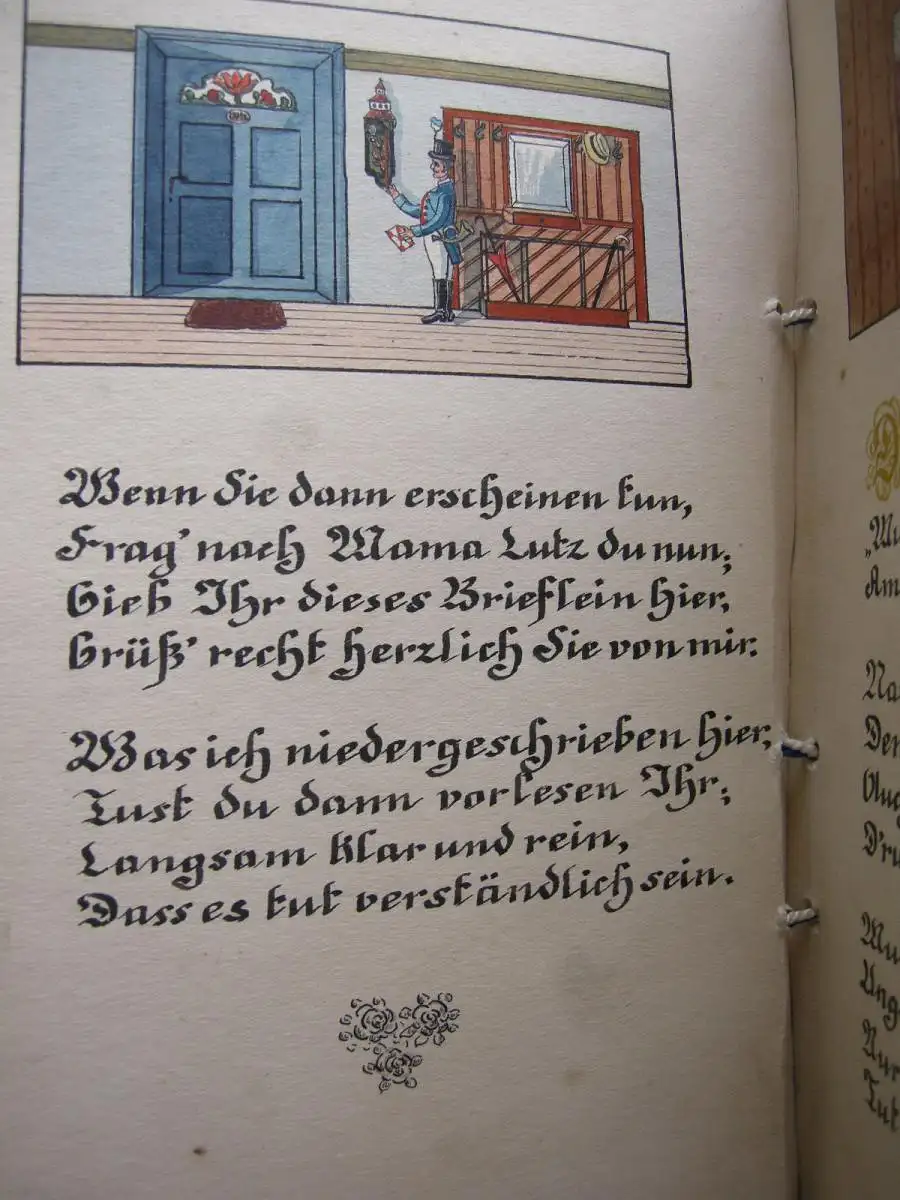 Wenn Sie dann erscheinen tun,
Frag' nach Mama Lutz du nun;
Gieb Ihr dieses Brieflein hier,
Grüß' recht herzlich Sie von mir.
Was ich niedergeschrieben hier,
Tust du dann vorlesen Ihr;
Langsam klar und rein,
Dass es tut verständlich sein.